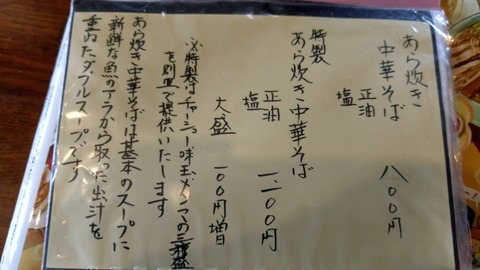 あら炊き
中華そば
正油
塩
八〇〇円
特製
あら炊き中華そば
正油
塩
一、一〇〇円
大盛 一〇〇円増
※特製はチャーシュー味玉メンマの三種盛
を別皿で提供いたします
あら炊き中華そばは基本のスープに
新鮮な魚のアラから取った出汁を
重ねたダブルスープです